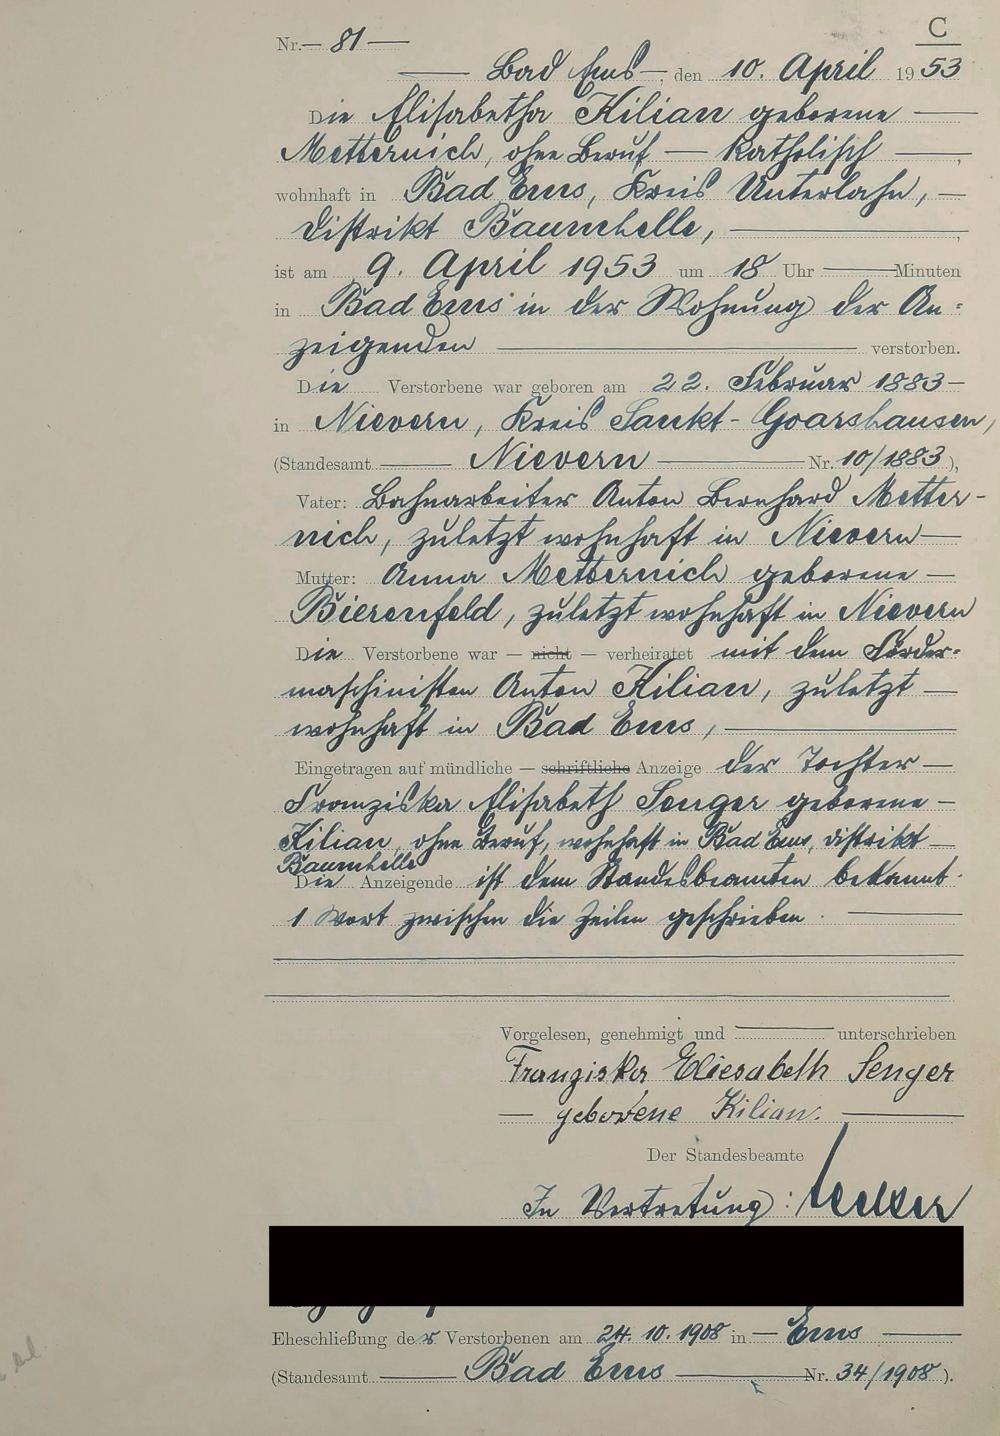 C
Nr. — 81 —
— Bad Ems —, den 10. April 1953
Die Elisabetha Kilian geborene —
Metternich, ohne Beruf — katholisch —,
wohnhaft in Bad Ems, Kreis Unterlahn, —
Distrikt Baumhelle, —,
ist am 9. April 1953 um 18 Uhr — Minuten
in Bad Ems in der Wohnung der An-
zeigenden — verstorben.
Die Verstorbene war geboren am 22. Februar 1883 —
in Nievern, Kreis Sankt-Goarshausen,
(Standesamt — Nievern — Nr. 10/1883),
Vater: Bahnarbeiter Anton Bernhard Metter-
nich, zuletzt wohnhaft in Nievern —
Mutter: Anna Metternich geborene —
Bierenfeld, zuletzt wohnhaft in Nievern
Die Verstorbene war — nicht — verheiratet mit dem Förder-
maschinisten Anton Kilian, zuletzt —
wohnhaft in Bad Ems, —
Eingetragen auf mündliche — schriftliche Anzeige der Tochter —
Franziska Elisabeth Senger geborene —
Kilian, ohne Beruf, wohnhaft in Bad Ems, Distrikt —
Baumhelle
Die Anzeigende ist dem Standesbeamten bekannt.
1 Wort zwischen die Zeilen geschrieben. —
Vorgelesen, genehmigt und — unterschrieben
Franziska Eliesabeth Senger
— geborene Kilian. —
Der Standesbeamte
In Vertretung:
Eheschließung der Verstorbenen am 24. 10. 1908 in — Ems —
(Standesamt — Bad Ems — Nr. 34/1908).